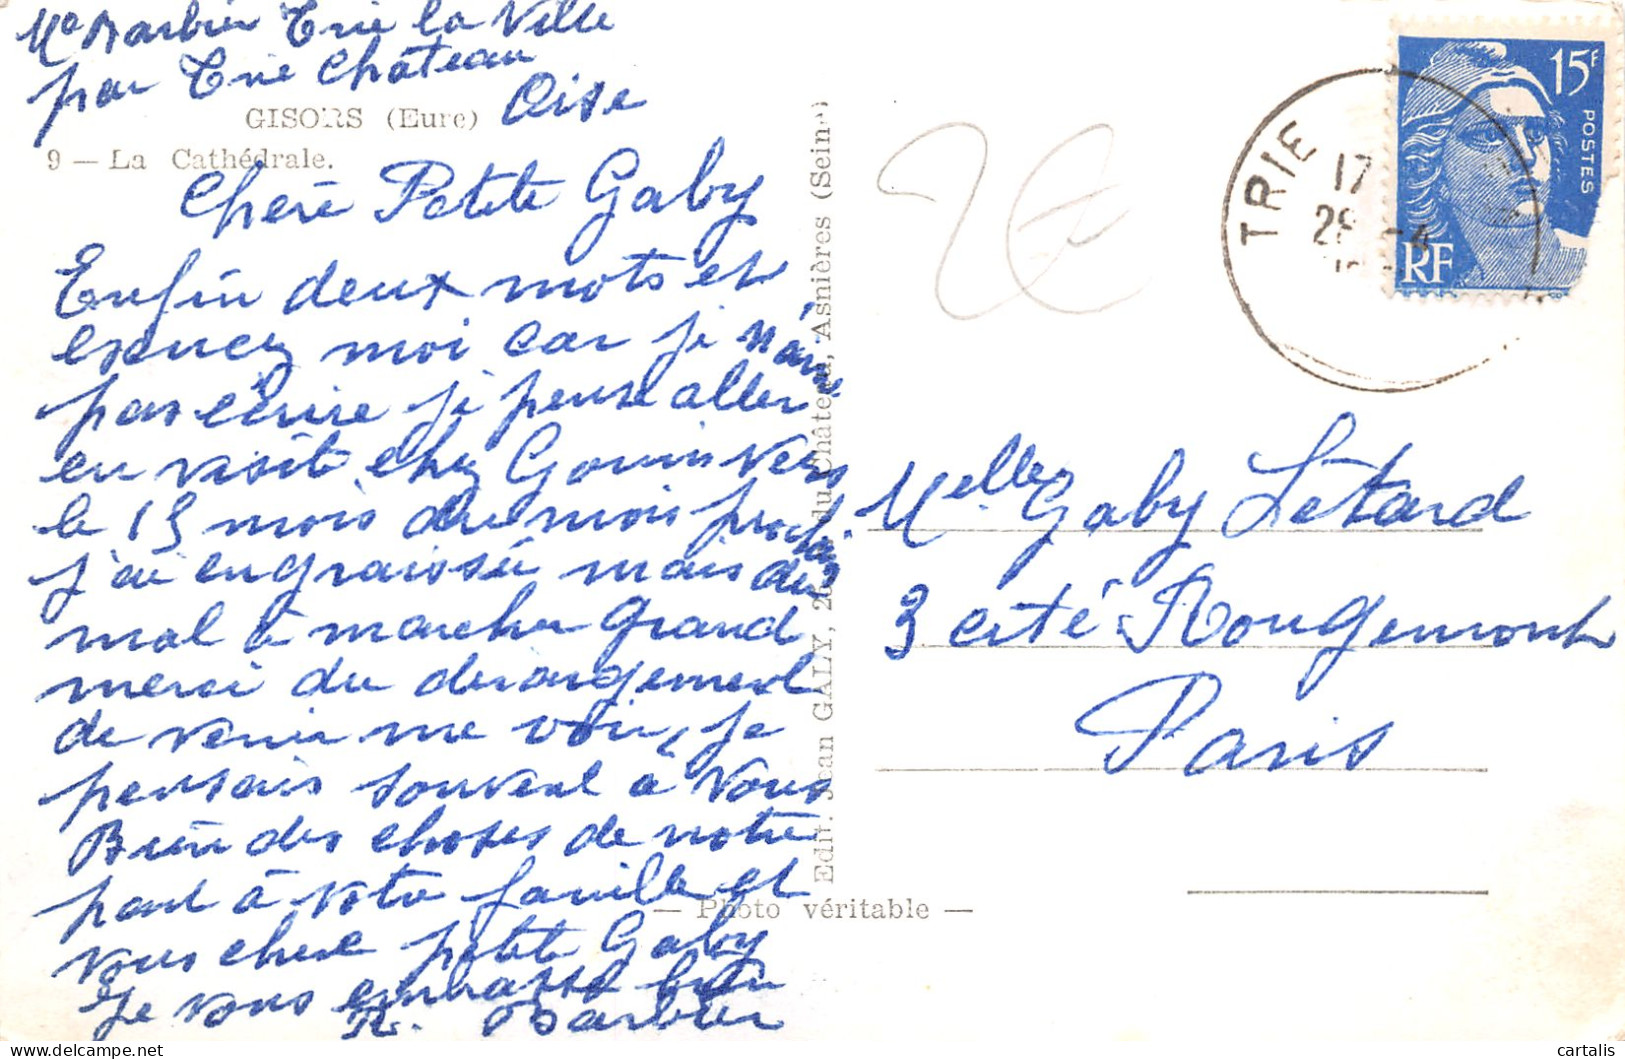 Me Barbier Trie la Ville
par Trie Chateau
Oise
GISORS (Eure)
9 — La Cathédrale.
Chère Petite Gaby
Enfin deux mots et
excusez moi car je n'aime
pas écrire je pense aller
en visite chez Gouin vers
le 15 mois du mois prochain
j'ai engraissée mais du
mal à marcher grand
merci du derangement
de venir me voir, je
pensais souvent à vous
Bien des choses de notre
part à votre famille et
vous chere petite Gaby
Je vous embrasse bien
R. Barbier
Edit. Jean GALY, 26, du Château, Asnières (Seine)
— Photo véritable —
15F
POSTES
RF
TRIE
17
28 -4
Melle Gaby Létard
3 cité Rougemont
Paris
cartalis.com